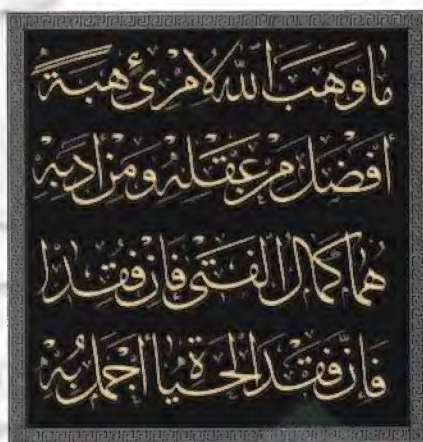 ما وهب الله لامرئ هبة
أفضل من عقله ومن أدبه
هما كمال الفتى فإن فقدا
فإن فقد الحياة أجمل به